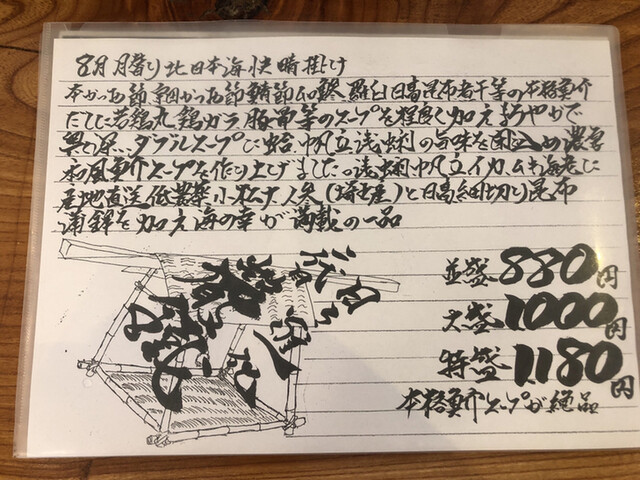 8月月替り北日本海快晴掛け
本かつお節宗田かつお節鯖節ムロ鰺羅臼日高昆布煮干等の本格魚介
だしに若鶏丸鶏ガラ豚骨等のスープを程良く加えまろやかで
奥深いダブルスープに蛤帆立浅蜊の旨味を閉込め濃厚
和風魚介スープを作り上げました。浅蜊帆立イカムキ海老に
産地直送低農薬小松大人参(埼玉産)と日高細切り昆布
蒲鉾を加え海の幸が満載の一品
並盛880円
大盛1000円
特盛1180円
本格魚介スープが絶品